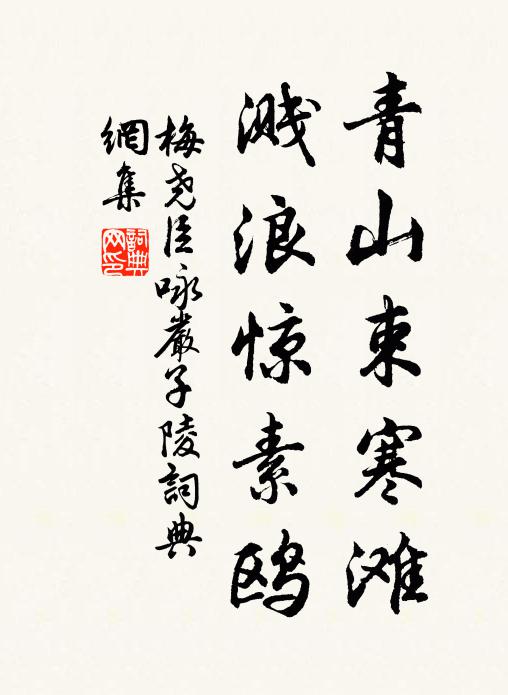 青山束寒滩
溅浪惊素鸥
梅尧臣咏嚴子陵詞典
網集
詞典
网印